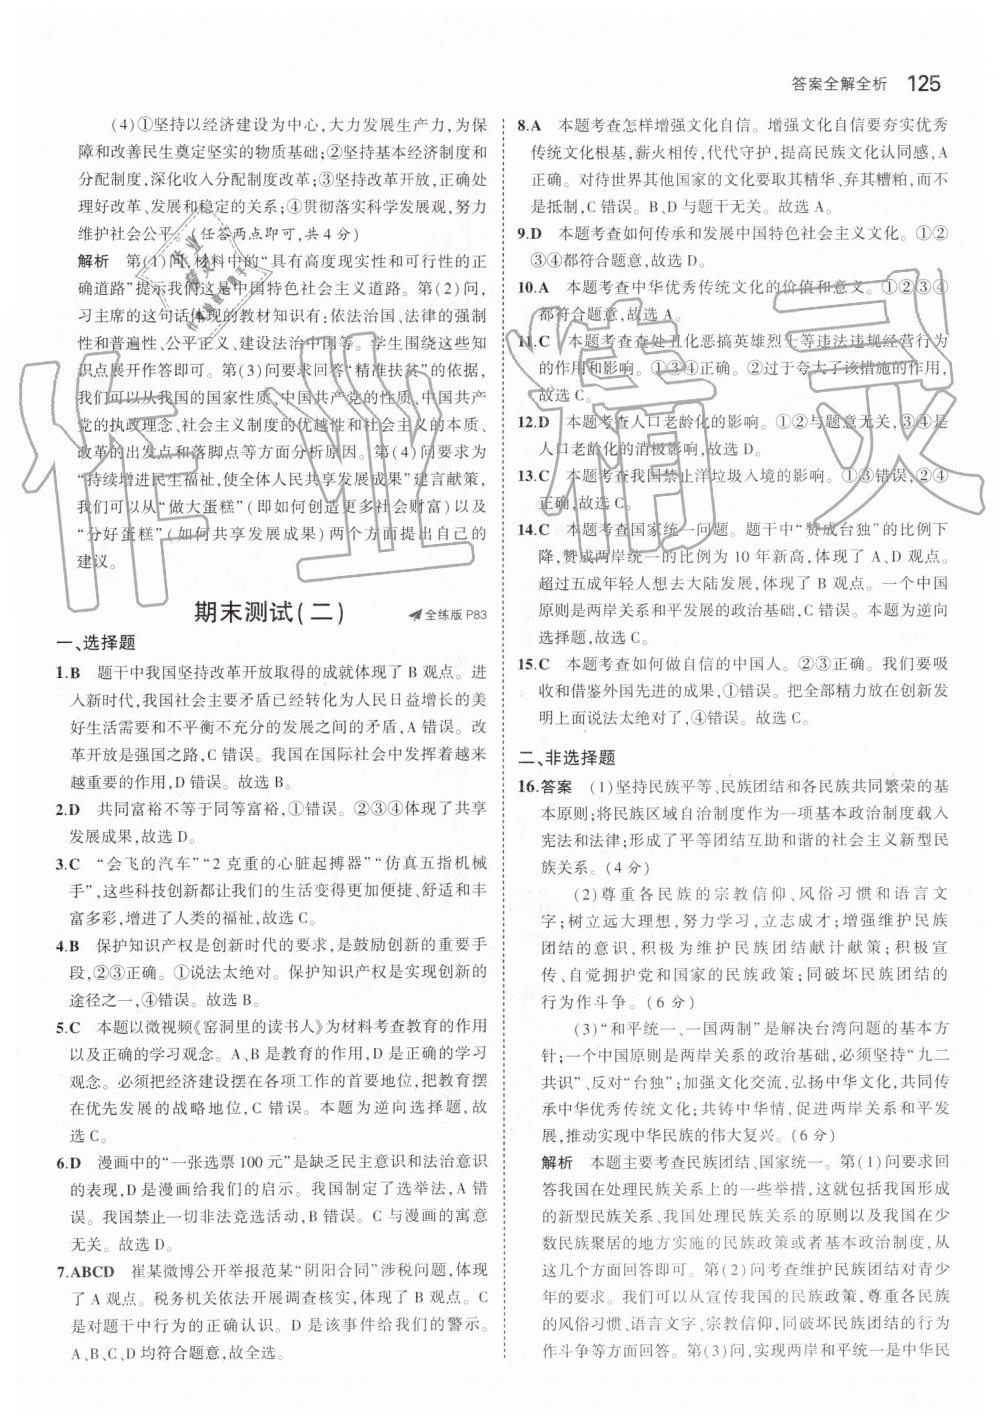 答案全解全析 125
(4)①坚持以经济建设为中心,大力发展生产力,为保
障和改善民生奠定坚实的物质基础;②坚持基本经济制度和
分配制度,深化收入分配制度改革;③坚持改革开放,正确处
理好改革、发展和稳定的关系;④贯彻落实科学发展观,努力
维护社会公平。(任答两点即可,共4分)
解析 第(1)问,材料中的“具有高度现实性和可行性的正
确道路”提示我们这是中国特色社会主义道路。第(2)问,
习主席的这句话体现的教材知识有:依法治国、法律的强制
性和普遍性、公平正义、建设法治中国等。学生围绕这些知
识点展开作答即可。第(3)问要求回答“精准扶贫”的依据,
我们可以从我国的国家性质、中国共产党的性质、中国共产
党的执政理念、社会主义制度的优越性和社会主义的本质、
改革的出发点和落脚点等方面分析原因。第(4)问要求为
“持续增进民生福祉,使全体人民共享发展成果”建言献策,
我们可以从“做大蛋糕”(即如何创造更多社会财富)以及
“分好蛋糕”(如何共享发展成果)两个方面提出自己的
建议。
期末测试(二) 全练版 P83
一、选择题
1.B 题干中我国坚持改革开放取得的成就体现了 B 观点。进
入新时代,我国社会主要矛盾已经转化为人民日益增长的美
好生活需要和不平衡不充分的发展之间的矛盾,A 错误。改
革开放是强国之路,C 错误。我国在国际社会中发挥着越来
越重要的作用,D 错误。故选 B。
2.D 共同富裕不等于同等富裕,①错误。②③④体现了共享
发展成果,故选 D。
3.C “会飞的汽车”“2 克重的心脏起搏器”“仿真五指机械
手”,这些科技创新都让我们的生活变得更加便捷、舒适和丰
富多彩,增进了人类的福祉,故选 C。
4.B 保护知识产权是创新时代的要求,是鼓励创新的重要手
段,②③正确。①说法太绝对。保护知识产权是实现创新的
途径之一,④错误。故选 B。
5.C 本题以微视频《窑洞里的读书人》为材料考查教育的作用
以及正确的学习观念。A、B 是教育的作用,D 是正确的学习
观念。必须把经济建设摆在各项工作的首要地位,把教育摆
在优先发展的战略地位,C 错误。本题为逆向选择题,故
选 C。
6.D 漫画中的“一张选票 100 元”是缺乏民主意识和法治意识
的表现,D 是漫画给我们的启示。我国制定了选举法,A 错
误。我国禁止一切非法竞选活动,B 错误。C 与漫画的寓意
无关。故选 D。
7.ABCD 崔某微博公开举报范某“阴阳合同”涉税问题,体现
了 A 观点。税务机关依法开展调查核实,体现了 B 观点。C
是对题干中行为的正确认识。D 是该事件给我们的警示。
A、B、C、D 均符合题意,故全选。
8.A 本题考查怎样增强文化自信。增强文化自信要夯实优秀
传统文化根基,薪火相传、代代守护,提高民族文化认同感,A
正确。对待世界其他国家的文化要取其精华、弃其糟粕,而不
是抵制,C 错误。B、D 与题干无关。故选 A。
9.D 本题考查如何传承和发展中国特色社会主义文化。①②
③④都符合题意,故选 D。
10.A 本题考查中华优秀传统文化的价值和意义。①②③④
都符合题意,故选 A。
11.C 本题考查查处丑化恶搞英雄烈士等违法违规经营行为
的作用和影响。①③④正确。②过于夸大了该措施的作用,
故选 C。
12.D 本题考查人口老龄化的影响。①②与题意无关,③④是
人口老龄化的消极影响,故选 D。
13.C 本题考查我国禁止洋垃圾入境的影响。①③错误,②④
正确,故选 C。
14.C 本题考查国家统一问题。题干中“赞成台独”的比例下
降,赞成两岸统一的比例为 10 年新高,体现了 A、D 观点。
超过五成年轻人想去大陆发展,体现了 B 观点。一个中国
原则是两岸关系和平发展的政治基础,C 错误。本题为逆向
选择题,故选 C。
15.C 本题考查如何做自信的中国人。②③正确。我们要吸
收和借鉴外国先进的成果,①错误。把全部精力放在创新发
明上面说法太绝对了,④错误。故选 C。
二、非选择题
16.答案 (1)坚持民族平等、民族团结和各民族共同繁荣的基
本原则;将民族区域自治制度作为一项基本政治制度载入
宪法和法律;形成了平等团结互助和谐的社会主义新型民
族关系。(4分)
(2)尊重各民族的宗教信仰、风俗习惯和语言文
字;树立远大理想,努力学习,立志成才;增强维护民族
团结的意识,积极为维护民族团结献计献策;积极宣
传、自觉拥护党和国家的民族政策;同破坏民族团结的
行为作斗争。(6分)
(3)“和平统一、一国两制”是解决台湾问题的基本方
针;一个中国原则是两岸关系的政治基础,必须坚持“九二
共识”、反对“台独”;加强文化交流,弘扬中华文化,共同传
承中华优秀传统文化;共铸中华情,促进两岸关系和平发
展,推动实现中华民族的伟大复兴。(6分)
解析 本题主要考查民族团结、国家统一。第(1)问要求回
答我国在处理民族关系上的一些举措,这就包括我国形成
的新型民族关系、我国处理民族关系的原则以及我国在少
数民族聚居的地方实施的民族政策或者基本政治制度,从
这几个方面回答即可。第(2)问考查维护民族团结对青少
年的要求。我们可以从宣传我国的民族政策,尊重各民族
的风俗习惯、语言文字、宗教信仰,同破坏民族团结的行为
作斗争等方面回答。第(3)问,实现两岸和平统一是中华民
作业精灵